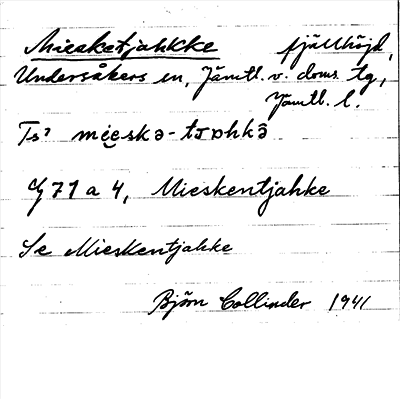 Miesketjahkke fjällhöjd,
Undersåkers sn, Jämtl. v. doms. tg,
Jämtl. l.
Ts? mi̮eskə-tjɒhkə̄
G 71 a 4, Mieskentjahke
Se Mieskentjahke
Björn Collinder 1941